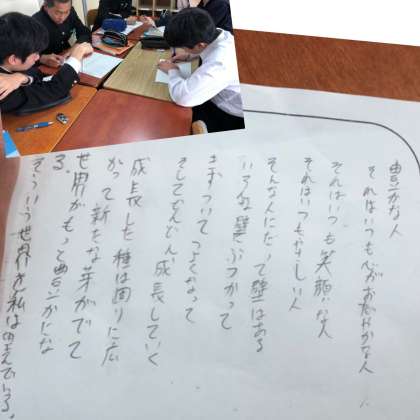 豊かな人
それはいつも心がおだやかな人
それはいつも笑顔な人
それはいつもやさしい人
そんな人にだって壁はある
いろんな壁にぶつかって
きずついてつよくなって
そしてどんどん成長していく
成長した種は周りに広
がって新たな芽がでて
世界がもって豊かにな
る
そういう世界を私は望んでいる。